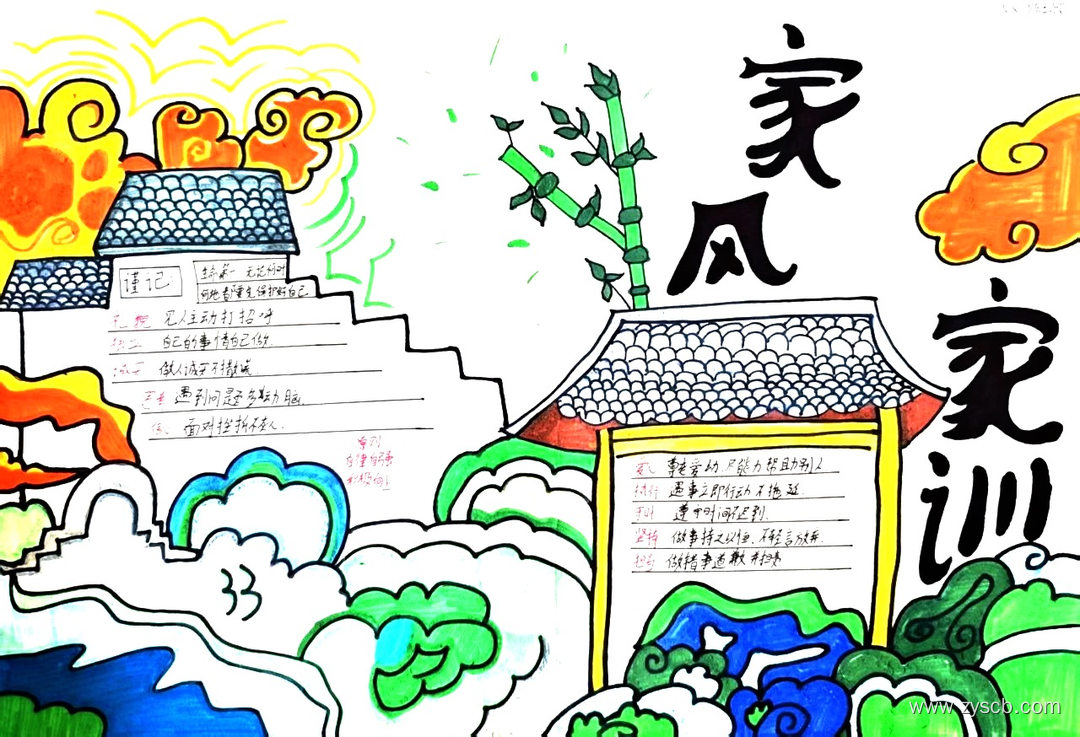 家风
家训
谨记
生命第一 无论何时
何地都要先保护好自己
礼貌 见人主动打招呼
独立 自己的事情自己做
诚实 做人诚实不撒谎
思考 遇到问题多动脑
面对挫折不
自律自强
积极向上
爱心 尊老爱幼 尽能力帮助别人
执行 遇事立即行动不拖延
守时 遵守时间不迟到
坚持 做事持之以恒,不轻言放弃
担当 做错事道歉并担责
www.zyscb.com